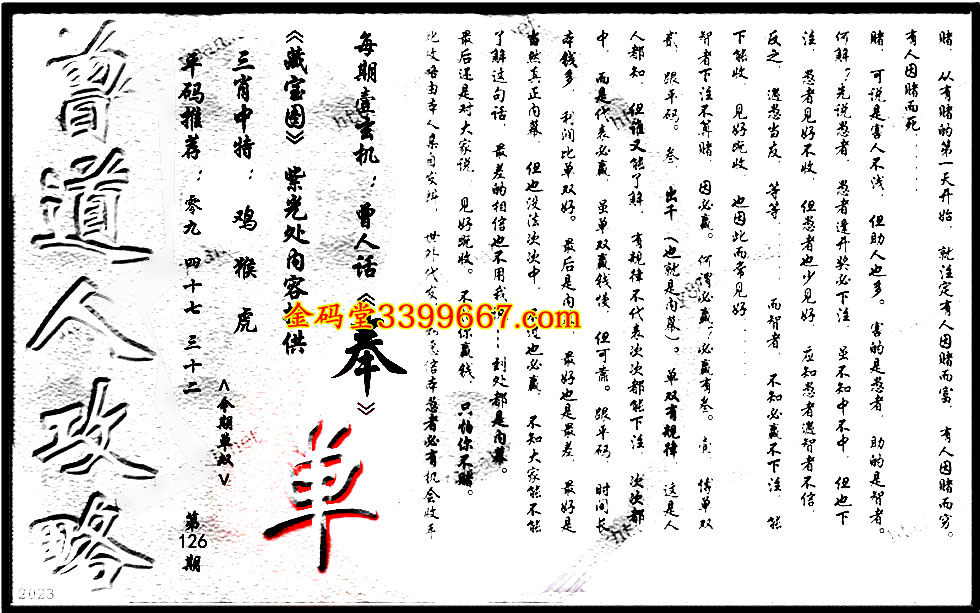 赌。从有赌的第一天开始。就注定有人因赌而富。有人因赌而穷。
有人因赌而死......
赌。可说是害人不浅。但助人也多。害的是愚者。助的是智者。
何解？先说愚者。愚者逢开奖必下注。虽不知中不中。但也下
注。愚者见好不收。但愚者也少见好。应知愚者遇智者不信。
反之。遇愚当度。等等......而智者。不知必赢不下注。能
下能收。见好就收。也因此而常见好......
智者下注不算赌。因必赢。何谓必赢？必赢有叁。壹。博单双
贰。跟平码。叁。出千（也就是内幕）。单双有规律。这是人
人都知。但谁又能了解。有规律不代表次次都能下注。次次都
中。而是代表必赢。虽单双赢钱慢。但可靠。跟平码。时间长
本钱多。利润比单双好。最后是内幕。最好也是最差。最好是
当然真正内幕。但也没法次次中。不过也必赢。不知大家能不能
了解这句话。最差的相信也不用我说......到处都是内幕。
最后还是对大家说。见好就收。不怕你赢钱。只怕你不赌。
此攻略由本人亲自发放。世外代友。愚者必有机会收车
每期壹玄机：曾人话《奉》
《藏宝图》紫光处内容提供
三肖中特：鸡 猴 虎
<今期单双>
单
平码推荐：零九 四十七 三十二
第126期
曾道人攻略
金码堂3399667.com
2023